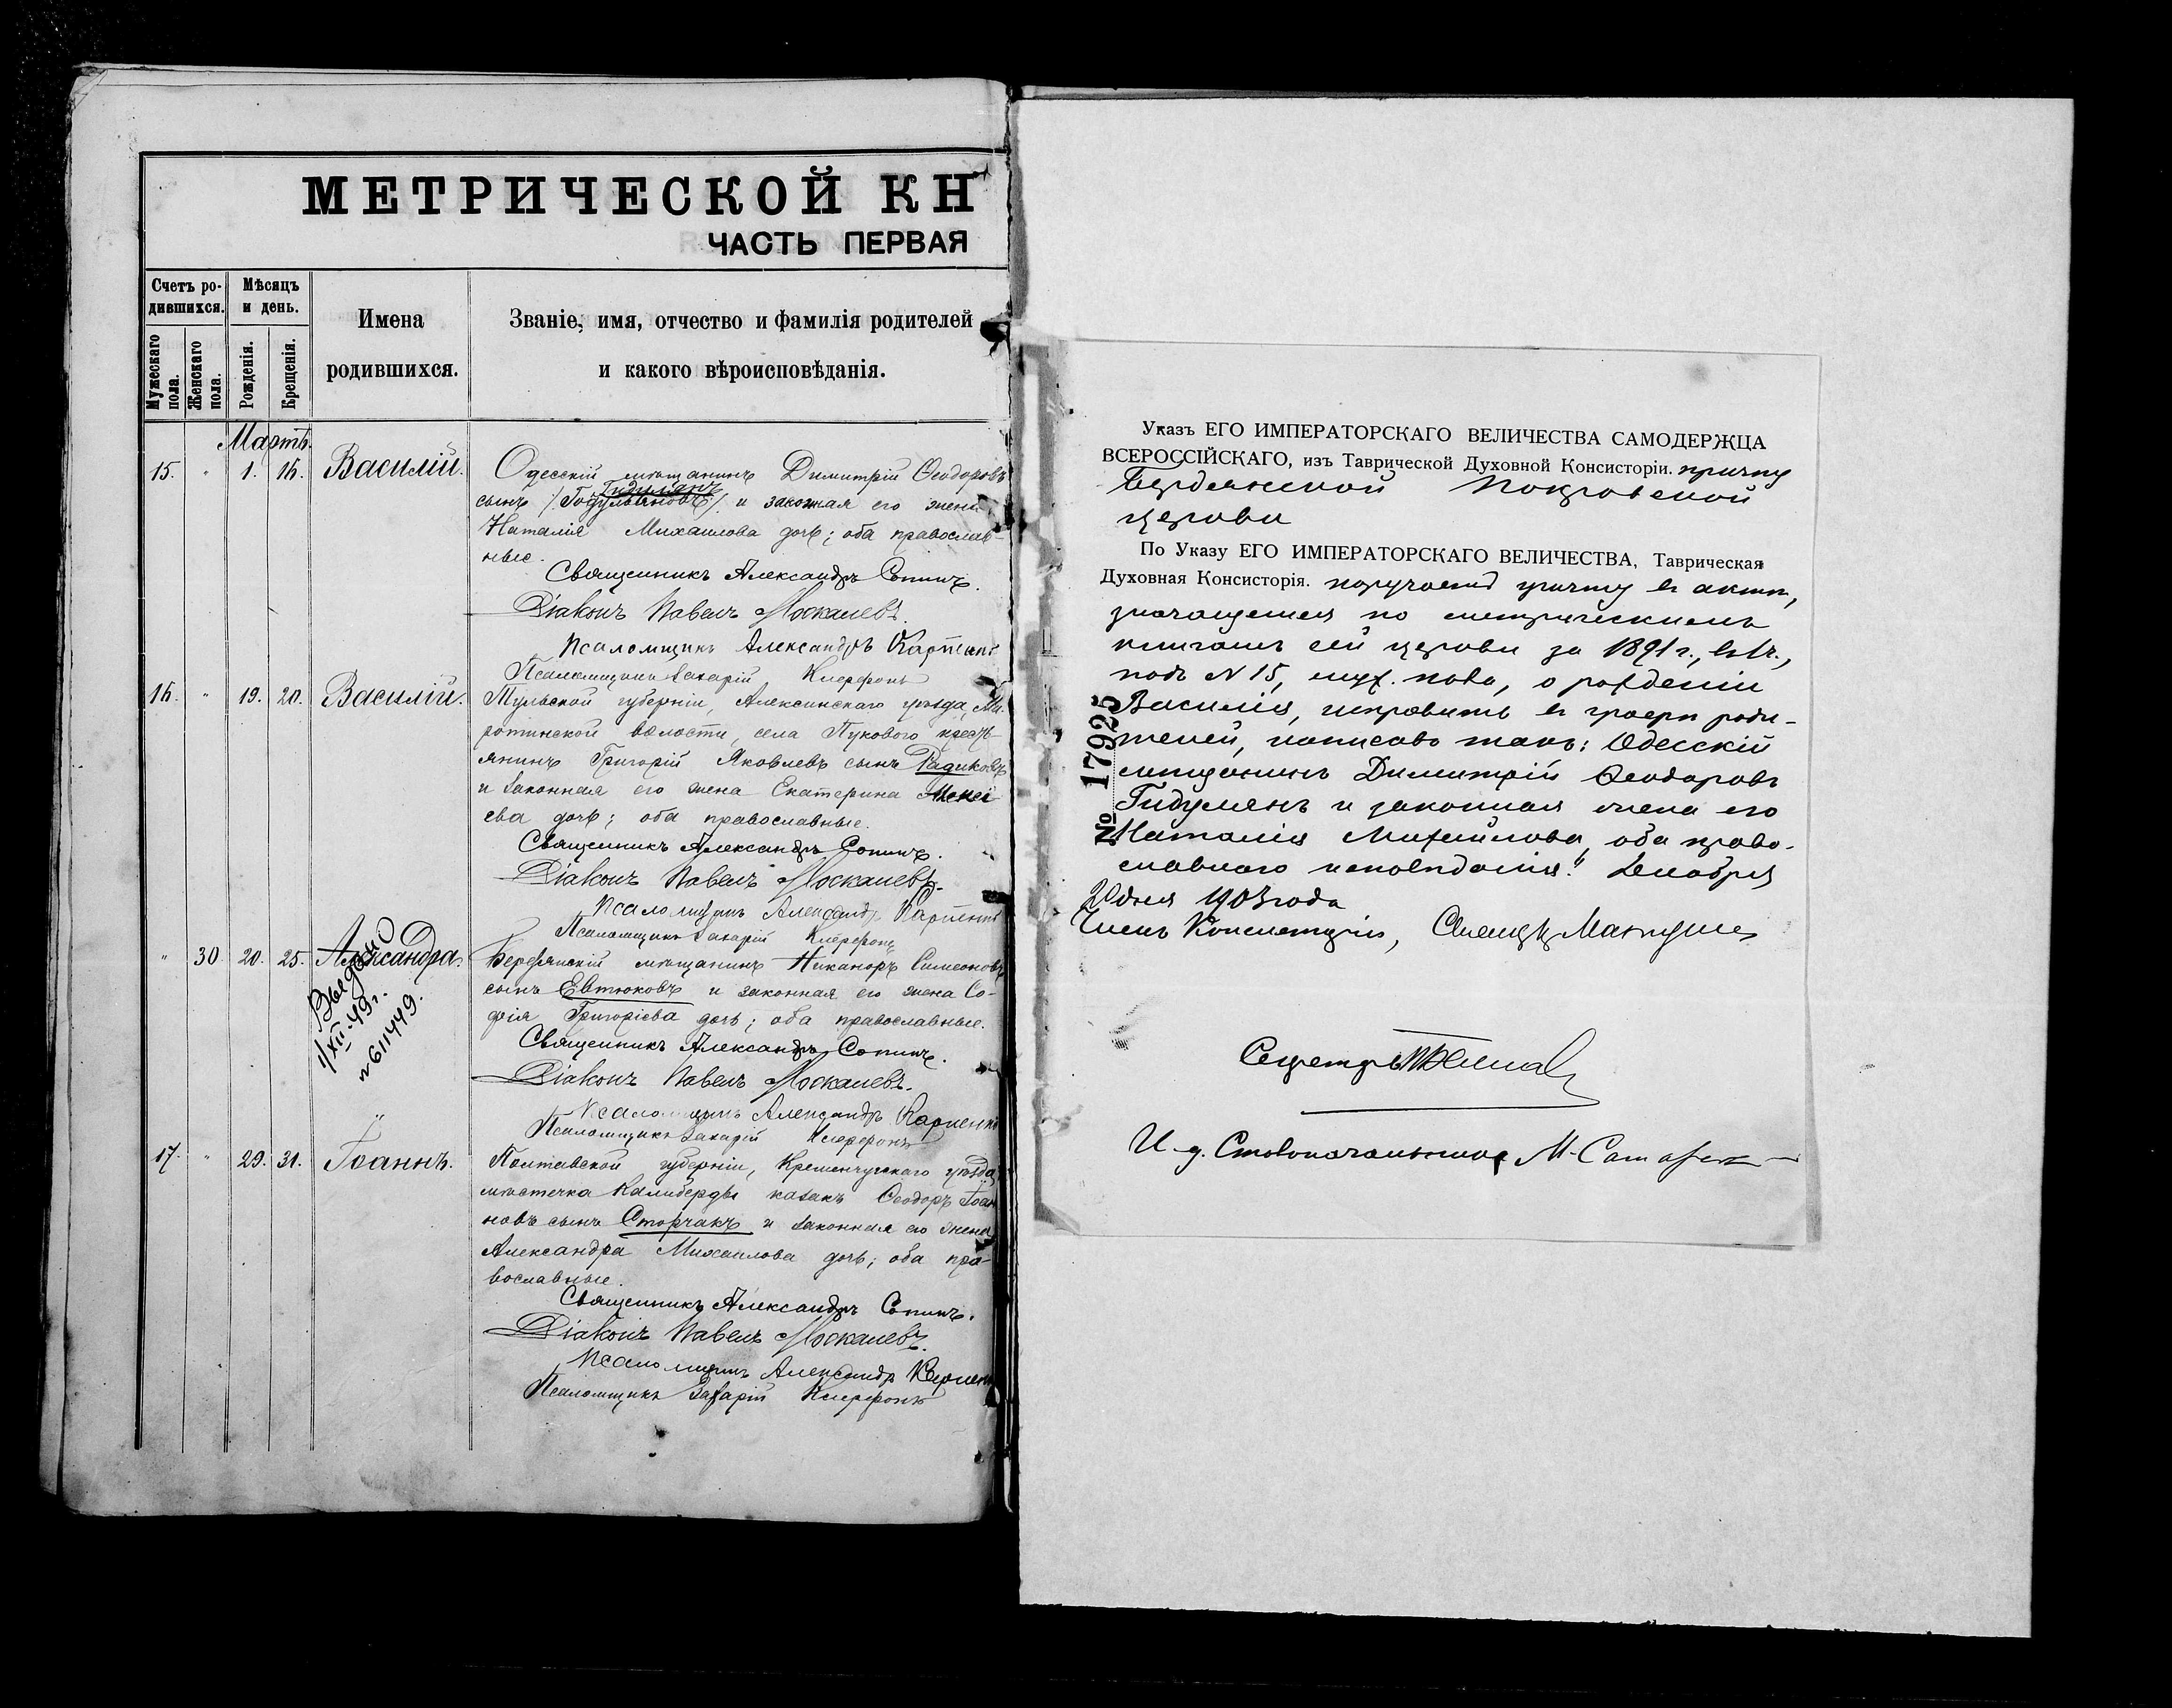 МЕТРИЧЕСКОЙ КН
ЧАСТЬ ПЕРВАЯ
Счетъ ро-
дившихся.
Мѣсяцъ
и день.
Мужескаго
пола.
Женскаго
пола.
Рожденія.
Крещенія.
Имена
родившихся.
Званіе, имя, отчество и фамилія родителей
и какого вѣроисповѣданія.
Мартъ.
15. " 1. 16. Василій.
Одесскій мѣщанинъ Димитрій Ѳеодоровъ
Гидулянъ
сынъ /Годульяновъ/ и законная его жена
Наталія Михаилова дочь; оба православ-
ные.
Священникъ Александръ Сопинъ.
Діаконъ Павелъ Москалевъ.
Псаломщикъ Александръ
Псаломщикъ Захарій
16. " 19. 20. Василій.
Тульской губерніи, Алексинскаго уѣзда, Ми-
ротинской волости, села Пукового кресть-
янинъ Григорій Яковлевъ сынъ Радиковъ
и законная его жена Екатерина
ева дочь; оба православные.
Священникъ Александръ Сопинъ.
Діаконъ Павелъ Москалевъ.
Псаломщикъ Александръ
Псаломщикъ Захарій
" 30. 20. 25. Александра.
Выдано
1/XII-49 г.
№ 611449.
Бердянскій мѣщанинъ Никаноръ Симеоновъ
сынъ Евтюковъ и законная его жена Со-
фія Григоріева дочь; оба православные.
Священникъ Александръ Сопинъ.
Діаконъ Павелъ Москалевъ.
Псаломщикъ Александръ Карпенко
Псаломщикъ Захарій
17. " 29. 31. Іоаннъ.
Полтавской губерніи, Кременчугскаго уѣзда,
мѣстечка Калиберды казакъ Ѳеодоръ Іоан
новъ сынъ Сторчакъ и законная его жена
Александра Михаилова дочь; оба пра-
вославные.
Священникъ Александръ Сопинъ.
Діаконъ Павелъ Москалевъ.
Псаломщикъ Александръ
Псаломщикъ Захарій
Указъ ЕГО ИМПЕРАТОРСКАГО ВЕЛИЧЕСТВА САМОДЕРЖЦА
ВСЕРОССІЙСКАГО, изъ Таврической Духовной Консисторіи. причту
Бердянской Покровской
церкви
По Указу ЕГО ИМПЕРАТОРСКАГО ВЕЛИЧЕСТВА, Таврическая
Духовная Консисторія. поручаетъ причту въ актѣ,
значащемся по метрическимъ
книгамъ сей церкви за 1891 г., въ 1 ч.,
подъ № 15, муж. пола, о рожденіи
Василія, исправить въ графѣ роди-
телей, написавъ такъ: Одесскій
мѣщанинъ Димитрій Ѳеодоровъ
Гидулянъ и законная жена его
Наталія Михайлова, оба право-
славного исповѣданія." Декабря
20 дня 1903 года
№ 17925
Членъ Консисторіи,
Секретарь
И. д. Столоначальника М.